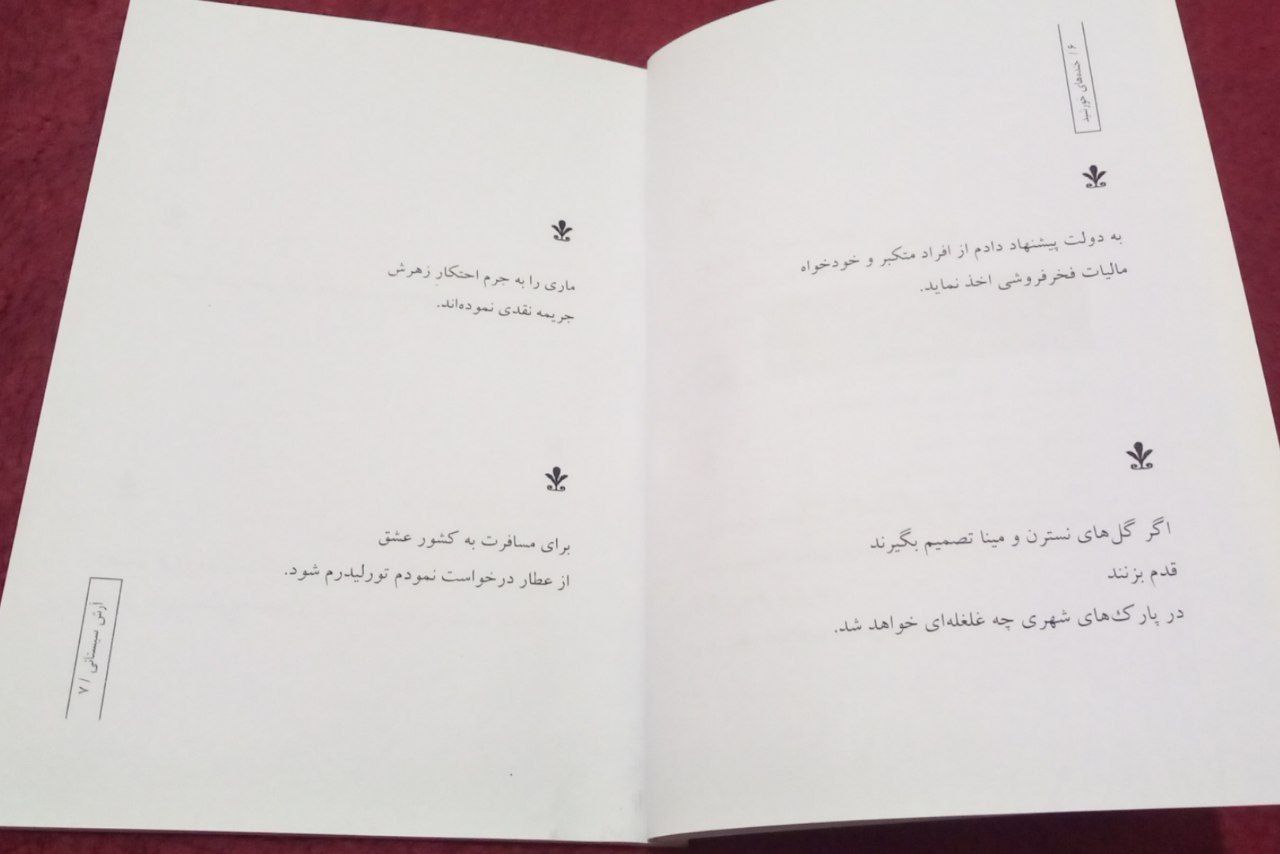 ۶ / خنده‌های خورشید
به دولت پیشنهاد دادم از افراد متکبر و خودخواه
مالیات فخرفروشی اخذ نماید.
اگر گل‌های نسترن و مینا تصمیم بگیرند
قدم بزنند
در پارک‌های شهری چه غلغله‌ای خواهد شد.
ماری را به جرم احتکارِ زهرش
جریمه نقدی نموده‌اند.
برای مسافرت به کشور عشق
از عطار درخواست نمودم تورلیدرم شود.
آرش سیستانی / ۷